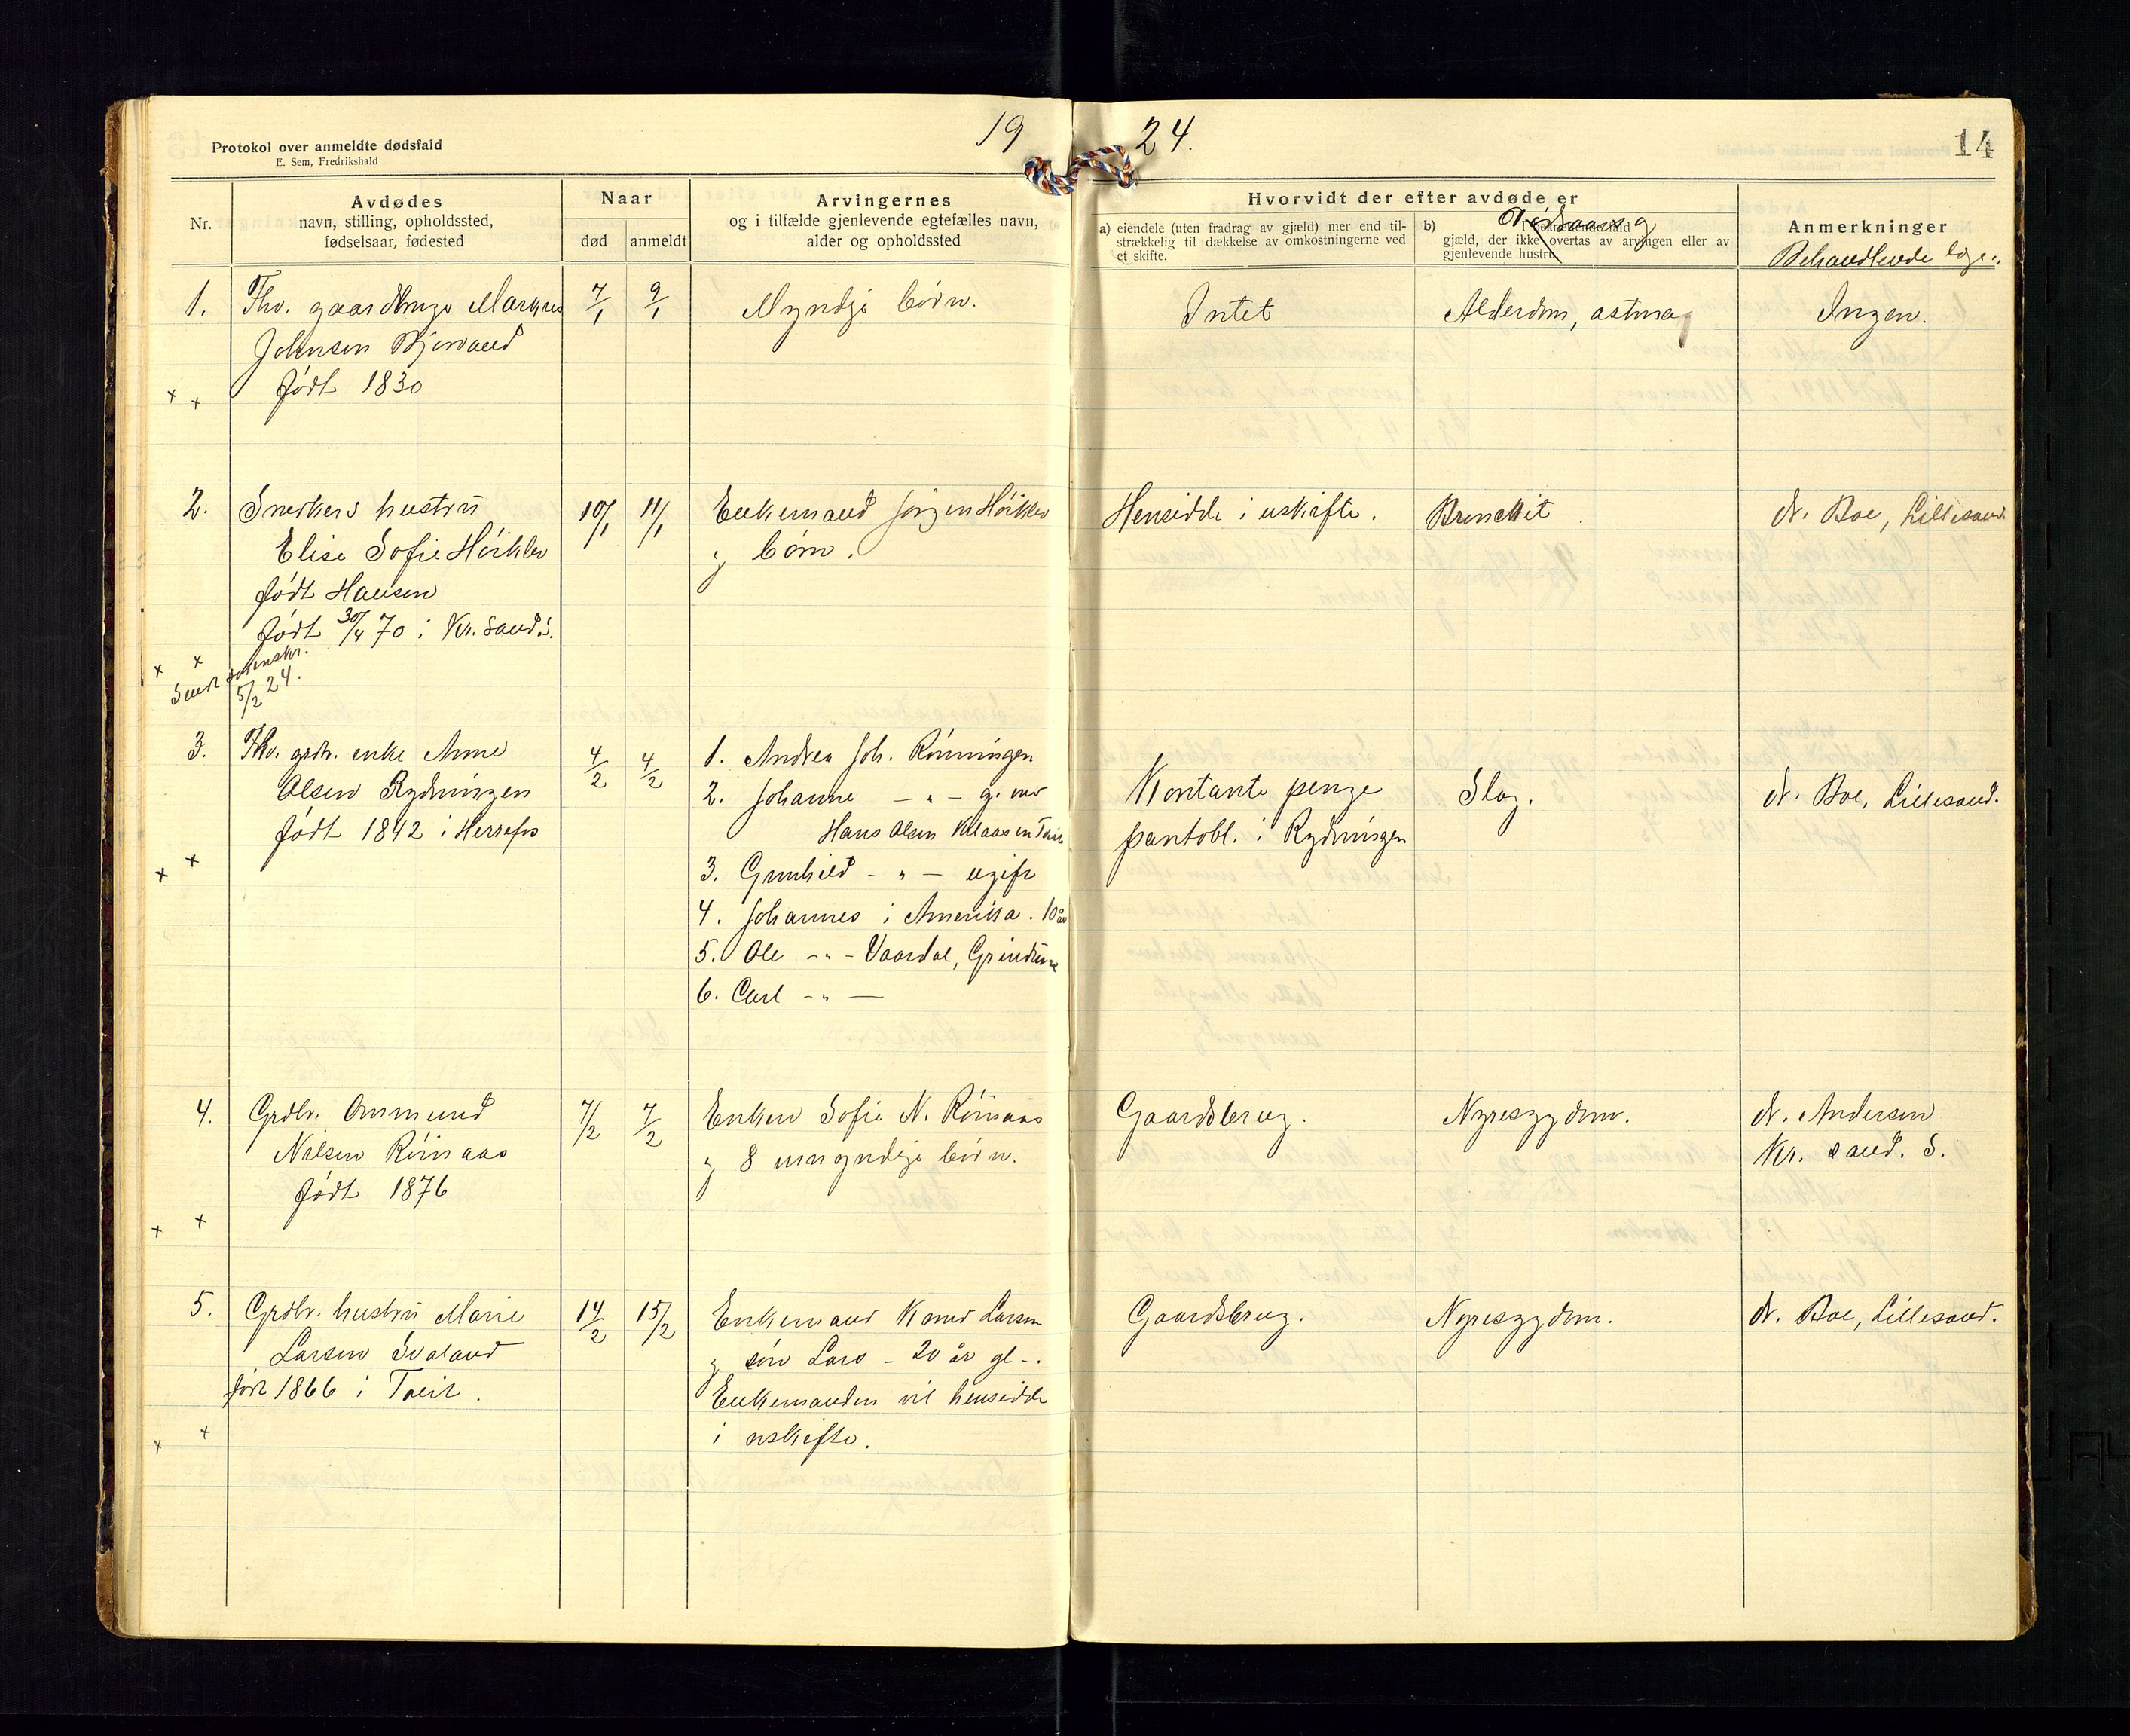 Protokol over anmeldte dødsfald
E. Sem, Fredrikshald
19 24.
14
Nr.
Avdødes
navn, stilling, opholdssted,
fødselsaar, fødested
Naar
død
anmeldt
Arvingernes
og i tilfælde gjenlevende egtefælles navn,
alder og opholdssted
Hvorvidt der efter avdøde er
a) eiendele (uten fradrag av gjæld) mer end til-
strækkelig til dækkelse av omkostningerne ved
et skifte.
Dødsaarsag
b)
gjæld, der ikke overtas av arvingen eller av
gjenlevende hustru.
Anmerkninger
Behandlende læge:
1. Fhv. gaardbruger Markus 7/1 9/1 Myndige børn. Intet Alderdom, astma Ingen.
Johnsen
født 1830
2. Snekers hustru 10/1 11/1 Enkemand Jørgen Høiklev Hensidde i uskifte. Bronchit. dr. Boe, Lillesand.
Elise Sofie Høiklev og børn.
født Hansen
født 30/4 70 i Kr.sand.S.
Sendt sorenskr.
5/2 24.
3. Fhv. grdbr. enke Anne 4/2 4/2 1. Andrea Joh. Rønningen
Olsen Rydningen 2. Johanne — " — g. med Kontante penge Slag. dr. Boe, Lillesand.
født 1842 i Herrefos Hans Olsen Tveit pantobl. i Rydningen
3. Gunhild - " — ugift
4. Johannes i Amerika. 10 år
5. Ole - " - Vaardal,
6. Carl - " —
4. Grdbr. Ommund 7/2 7/2 Enken Sofie N. Rømaas Gaardsbrug. Nyresygdom. dr. Andersen
Nilsen Rømaas og 8 umyndige børn. Kr. sand. S.
født 1876
5. Grdbr. hustru Marie 14/2 15/2 Enkemand Knud Larsen Gaardsbrug. Nyresygdom. dr. Boe, Lillesand.
Larsen Svaland og søn Lars - 20 år gl-.
født 1866 i Tveit. Enkemanden vil hensidde
i uskifte.